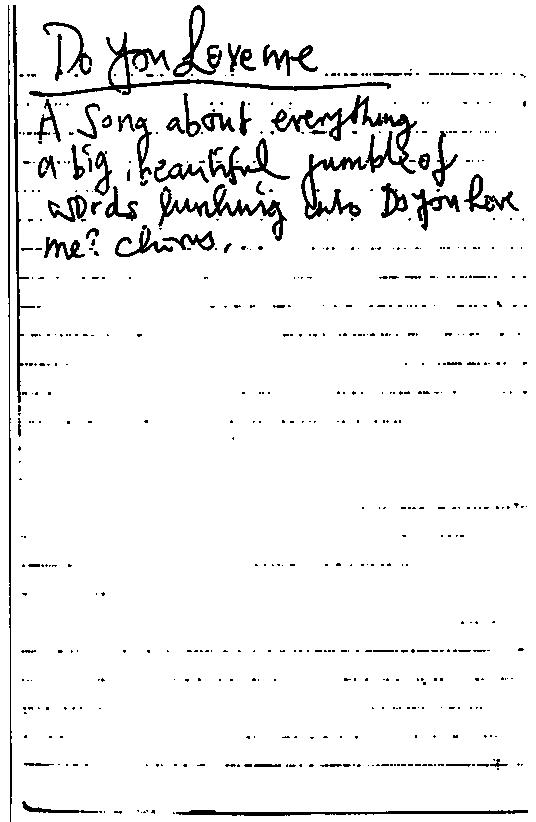 Do You Love me
A Song about everything
a big, beautiful jumble of
words lurching into Do you Love
me? Chorus...